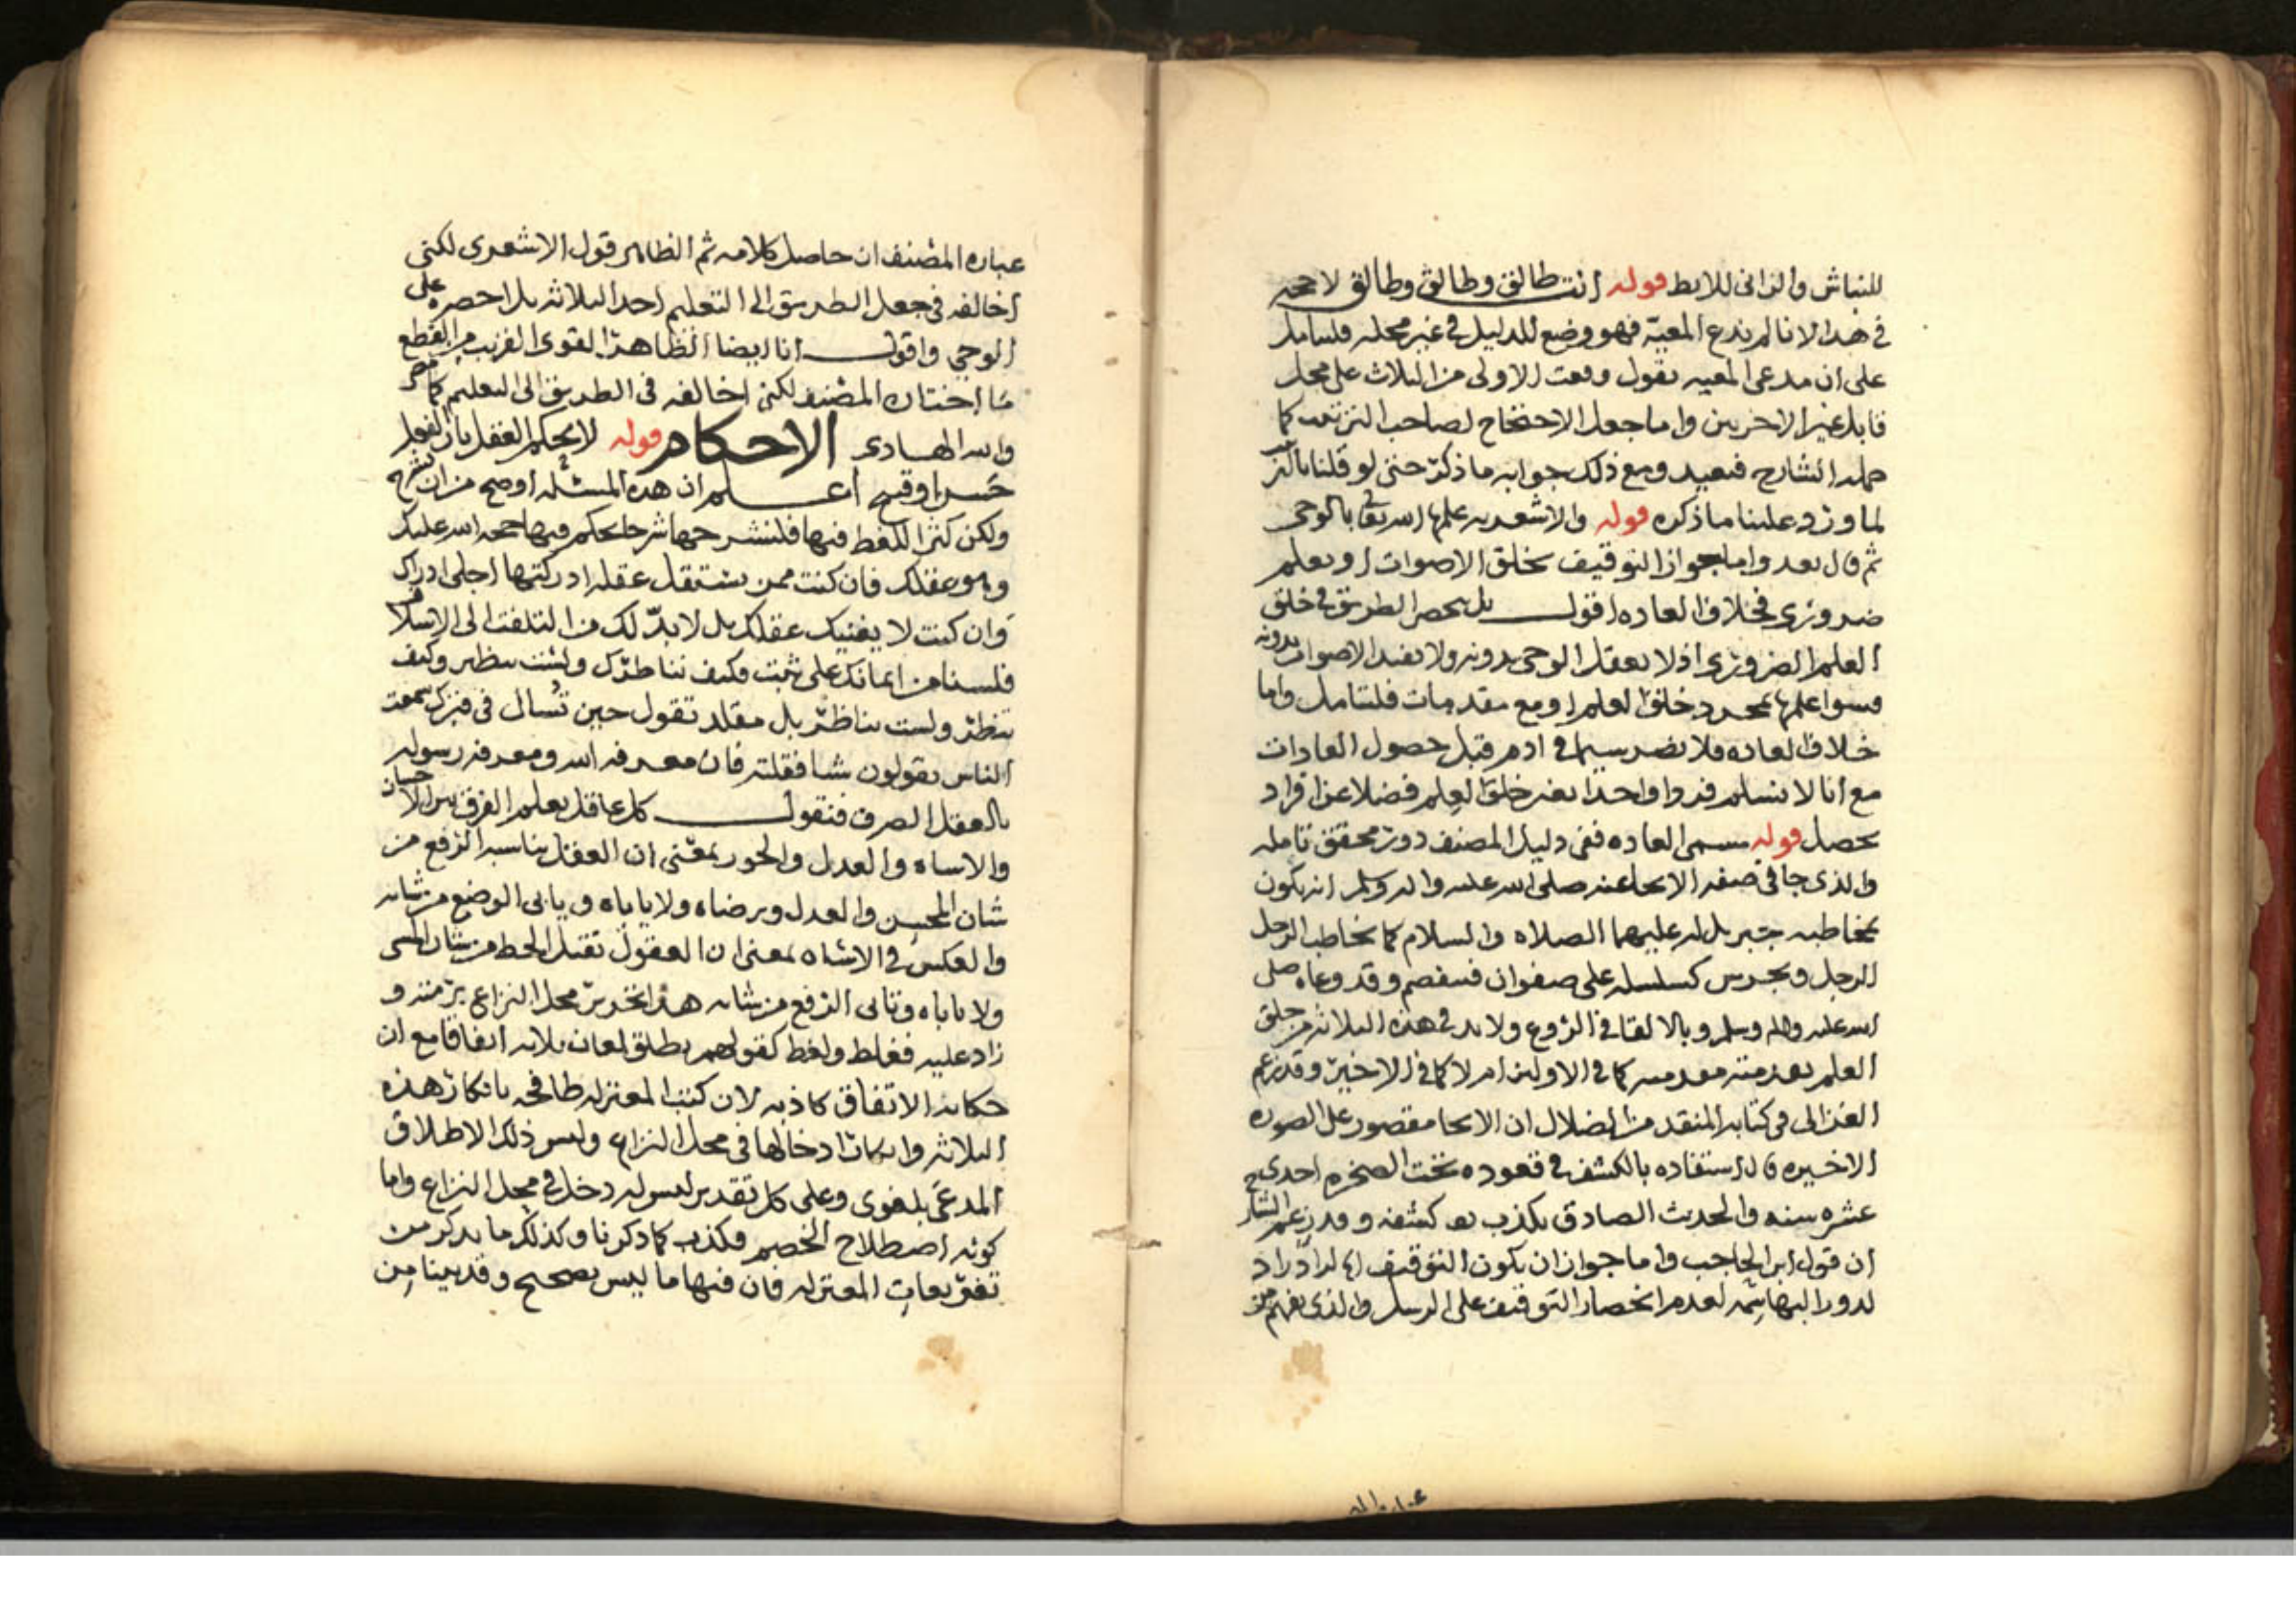 للنباش والزانى للايط قوله انت طالق وطالق وطالق لا حجه
فى هذا لانا لم ندع المعيّة فهو وضع للدليل فى غير محله فليتامل
على ان مدعى المعيه يقول وقعت الاولى من الثلاث على محل
قابل غير الاخريين واما جعل الاحتجاج لصاحب الترتيب كما
حمله الشارح فبعيد ومع ذلك جوابه ما ذكر حتى لو قلنا بالترتيب
لما ورد علينا ما ذكره قوله والاشعريه علمها الله تعالى بالوحى
ثم قال بعد واما جواز التوقيف بخلق الاصوات او بعلم
ضرورى فخلاف العاده اقول بل ينحصر الطريق فى خلق
العلم الضرورى اذ لا يعقل الوحى بدونه ولا تفيد الاصوات بدونه
فسوا علمها بمجرد خلق العلم او مع مقدمات فليتامل واما
خلاف العاده فلا يضر سيما فى ادم قبل حصول العادات
مع انا لا نسلم فردا واحدا بغير خلق العلم فضلا عن افراد
تحصل قوله مسمى العاده ففى دليل المصنف دور محقق تامله
والذى جا فى صفه الايحا عنه صلى الله عليه واله وسلم انه يكون
بمخاطبه جبريل له عليهما الصلاه والسلام كما يخاطب الرجل
الرجل وبجرس كسلسله على صفوان فيفصم وقد وعاه صلى
الله عليه واله وسلم وبالالقا فى الروع ولا بد فى هذه الثلاثه من خلق
العلم بعد مقدمه كما فى الاولين ام لا كما فى الاخير وقد زعم
الغزالى فى كتابه المنقذ من الضلال ان الايحا مقصور على الصوره
الاخيره قال استفاده بالكشف فى قعوده تحت الصخره احدى
عشره سنه والحديث الصادق يكذب كشفه وقد زعم الشارح
ان قول ابن الحاجب واما جواز ان يكون التوقيف راد
لدور البهاشمه لعدم انحصار التوقيف على الرسل والذى يفهم من
عباره المصنف ان حاصل كلامه ثم الظاهر قول الاشعرى لكنى
اخالفه فى جعل الطريق الى التعليم احد الثلاثه بل احصره على
الوحى واقول انا ايضا الظاهر القوى القريب من القطع
ما اختاره المصنف لكنى اخالفه فى الطريق الى التعليم كما مر
والله الهادى الاحكام قوله لا يحكم العقل بان الفعل
حسن او قبيح اعلم ان هذه المسئله اوضح من ان تشرح
ولكن كثر اللغط فيها فلنشرحها شرحا يحكم فيها حجه الله عليك
وهو عقلك فان كنت ممن يستقل عقله ادركتها اجلى ادراك
وان كنت لا يغنيك عقلك بل لا بدّ لك من التلفت الى الاسلاف
فلسنا من ايمانك على ثبت فكيف نناظرك ولست بنظير وكيف
تنظر ولست بناظر بل مقلد تقول حين تُسال فى قبرك سمعت
الناس يقولون شيا فقلته فان معرفه الله ومعرفه رسوله
بالعقل الصرف فنقول كل عاقل يعلم الفرق بين الاحسان
والاساه والعدل والجور بمعنى ان العقل يناسبه الرفع من
شان المحسن والعدل ويرضاه ولا ياباه ويابى الوضع من شانه
والعكس فى الاساه بمعنى ان العقول تقبل الحط من شان المسى
ولا تاباه وتابى الرفع من شانه هذا تحرير محل النزاع برّمته و
زاد عليه فغلط ولغط كقولهم يطلق لمعان ثلاثه اتفاقا مع ان
حكايه الاتفاق كاذبه لان كتب المعتزله طافحه بانكار هذه
الثلاثه وانكار ادخالها فى محل النزاع وليس ذلك الاطلاق
المدعى بلغوى وعلى كل تقدير ليس له دخل فى محل النزاع واما
كونه اصطلاح الخصم فكذب كما ذكرنا وكذلك ما يذكر من
تفريعات المعتزله فان فيها ما ليس بصحيح وقد بينا من